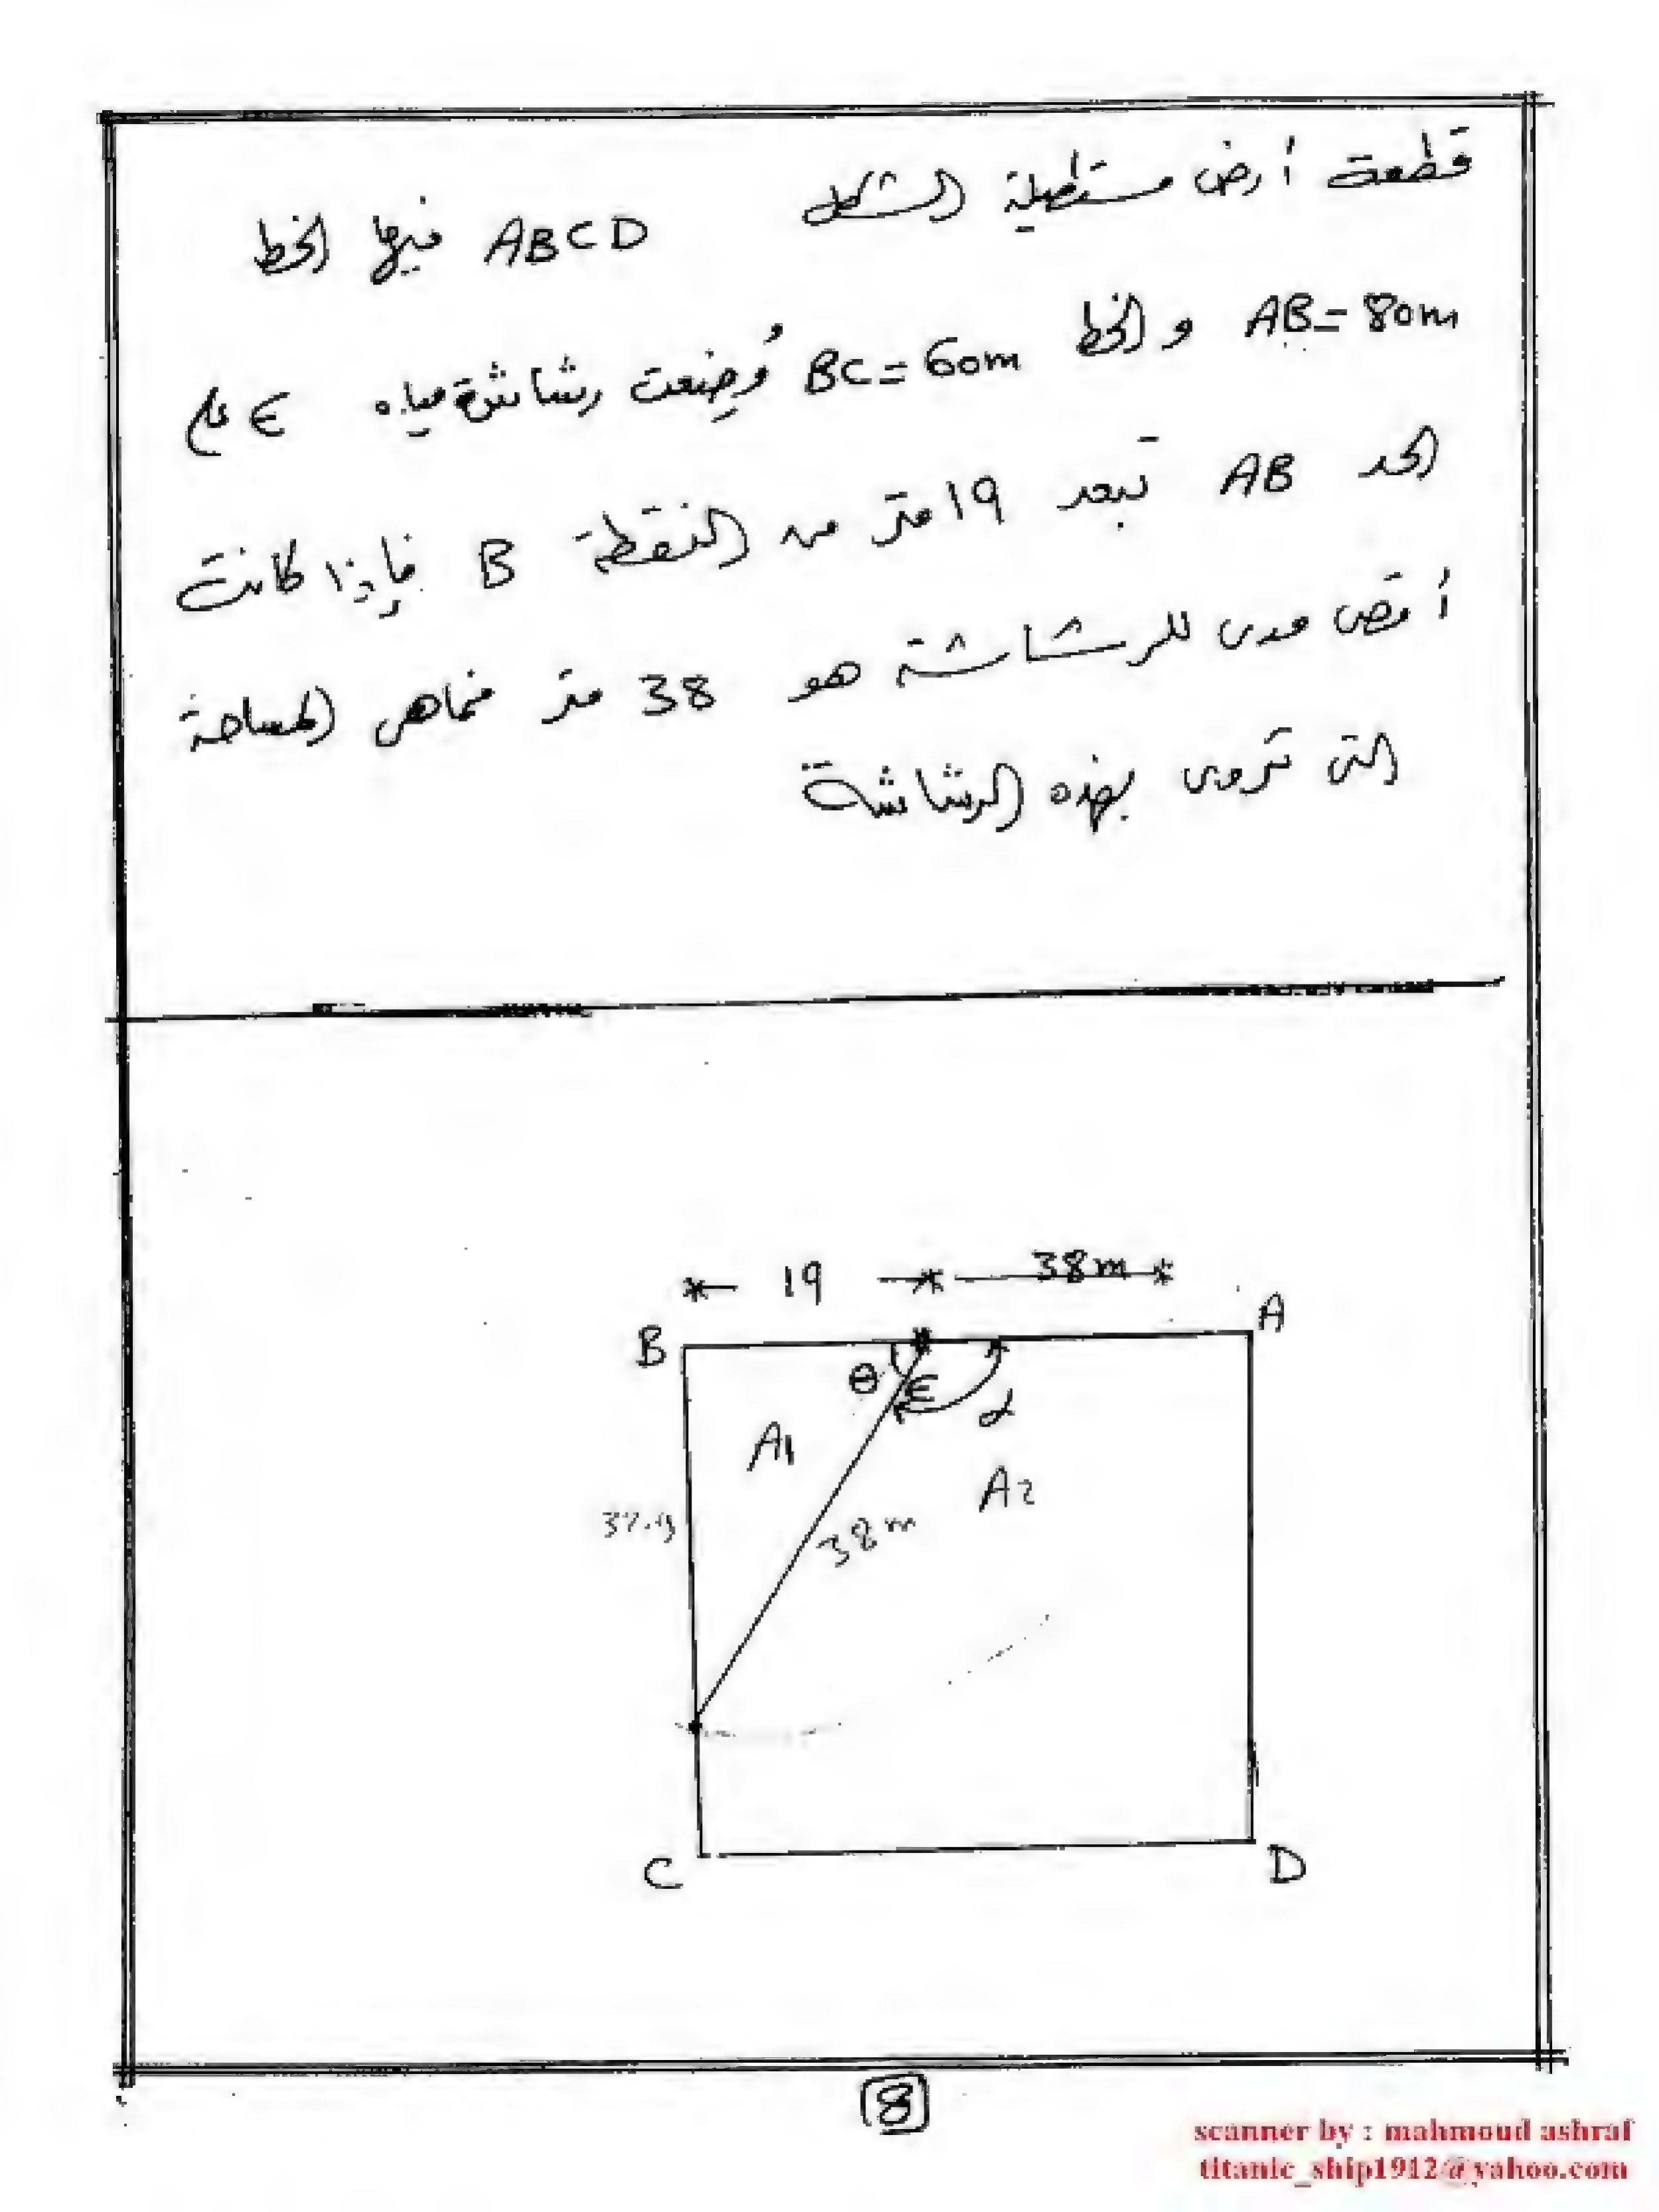 قطعة أرض مستطيلة الشكل ABCD فيها الخط
AB = 80m والخط BC = 60m وُضِعت رشاشة مياه E على
الحد AB تبعد 19 متر من النقطة B فإذا كانت
أقصى مدى للرشاشة هو 38 متر فما هى المساحة
التى تروى بهذه الرشاشة
19 38m
B A
θ E α
A1
A2
38m
C D
8
scanner by : mahmoud ashraf
titanic_ship1912@yahoo.com